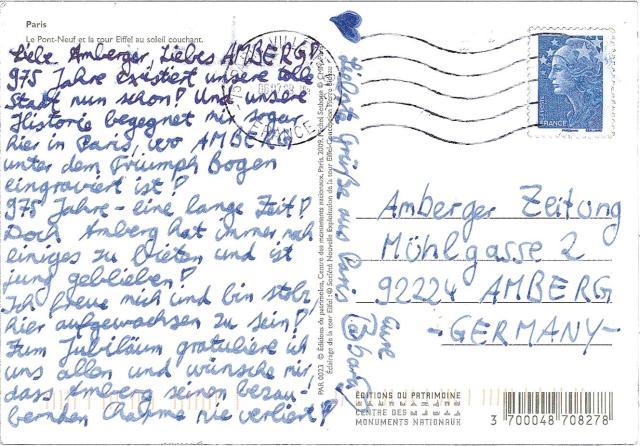 Paris
Le Pont-Neuf et la tour Eiffel au soleil couchant.
Liebe Amberger, Liebes AMBERG!
975 Jahre existiert unsere tolle
Stadt nun schon! Und unsere
Historie begegnet mir sogar
hier in Paris, wo AMBERG
unter dem Triumph Bogen
eingraviert ist!
975 Jahre - eine lange Zeit!
Doch Amberg hat immer noch
einiges zu bieten und ist
jung geblieben!
Ich freue mich und bin stolz
hier aufgewachsen zu sein!
Zum Jubiläum gratuliere ich
uns allen und wünsche mir
dass Amberg seinen bezau-
bernden Charme nie verliert!
Liebste Grüße aus Paris
Eure
PAR 0023 © Éditions du patrimoine, Centre des monuments nationaux, Paris, 2009.
Éclairage de la tour Eiffel : © Société Nouvelle Exploitation de la tour Eiffel-Conception Pierre Bideau
FRANCE
FRANCE
Amberger Zeitung
Mühlgasse 2
92224 AMBERG
-GERMANY-
ÉDITIONS DU PATRIMOINE
CENTRE DES
MONUMENTS NATIONAUX
3 700048 708278